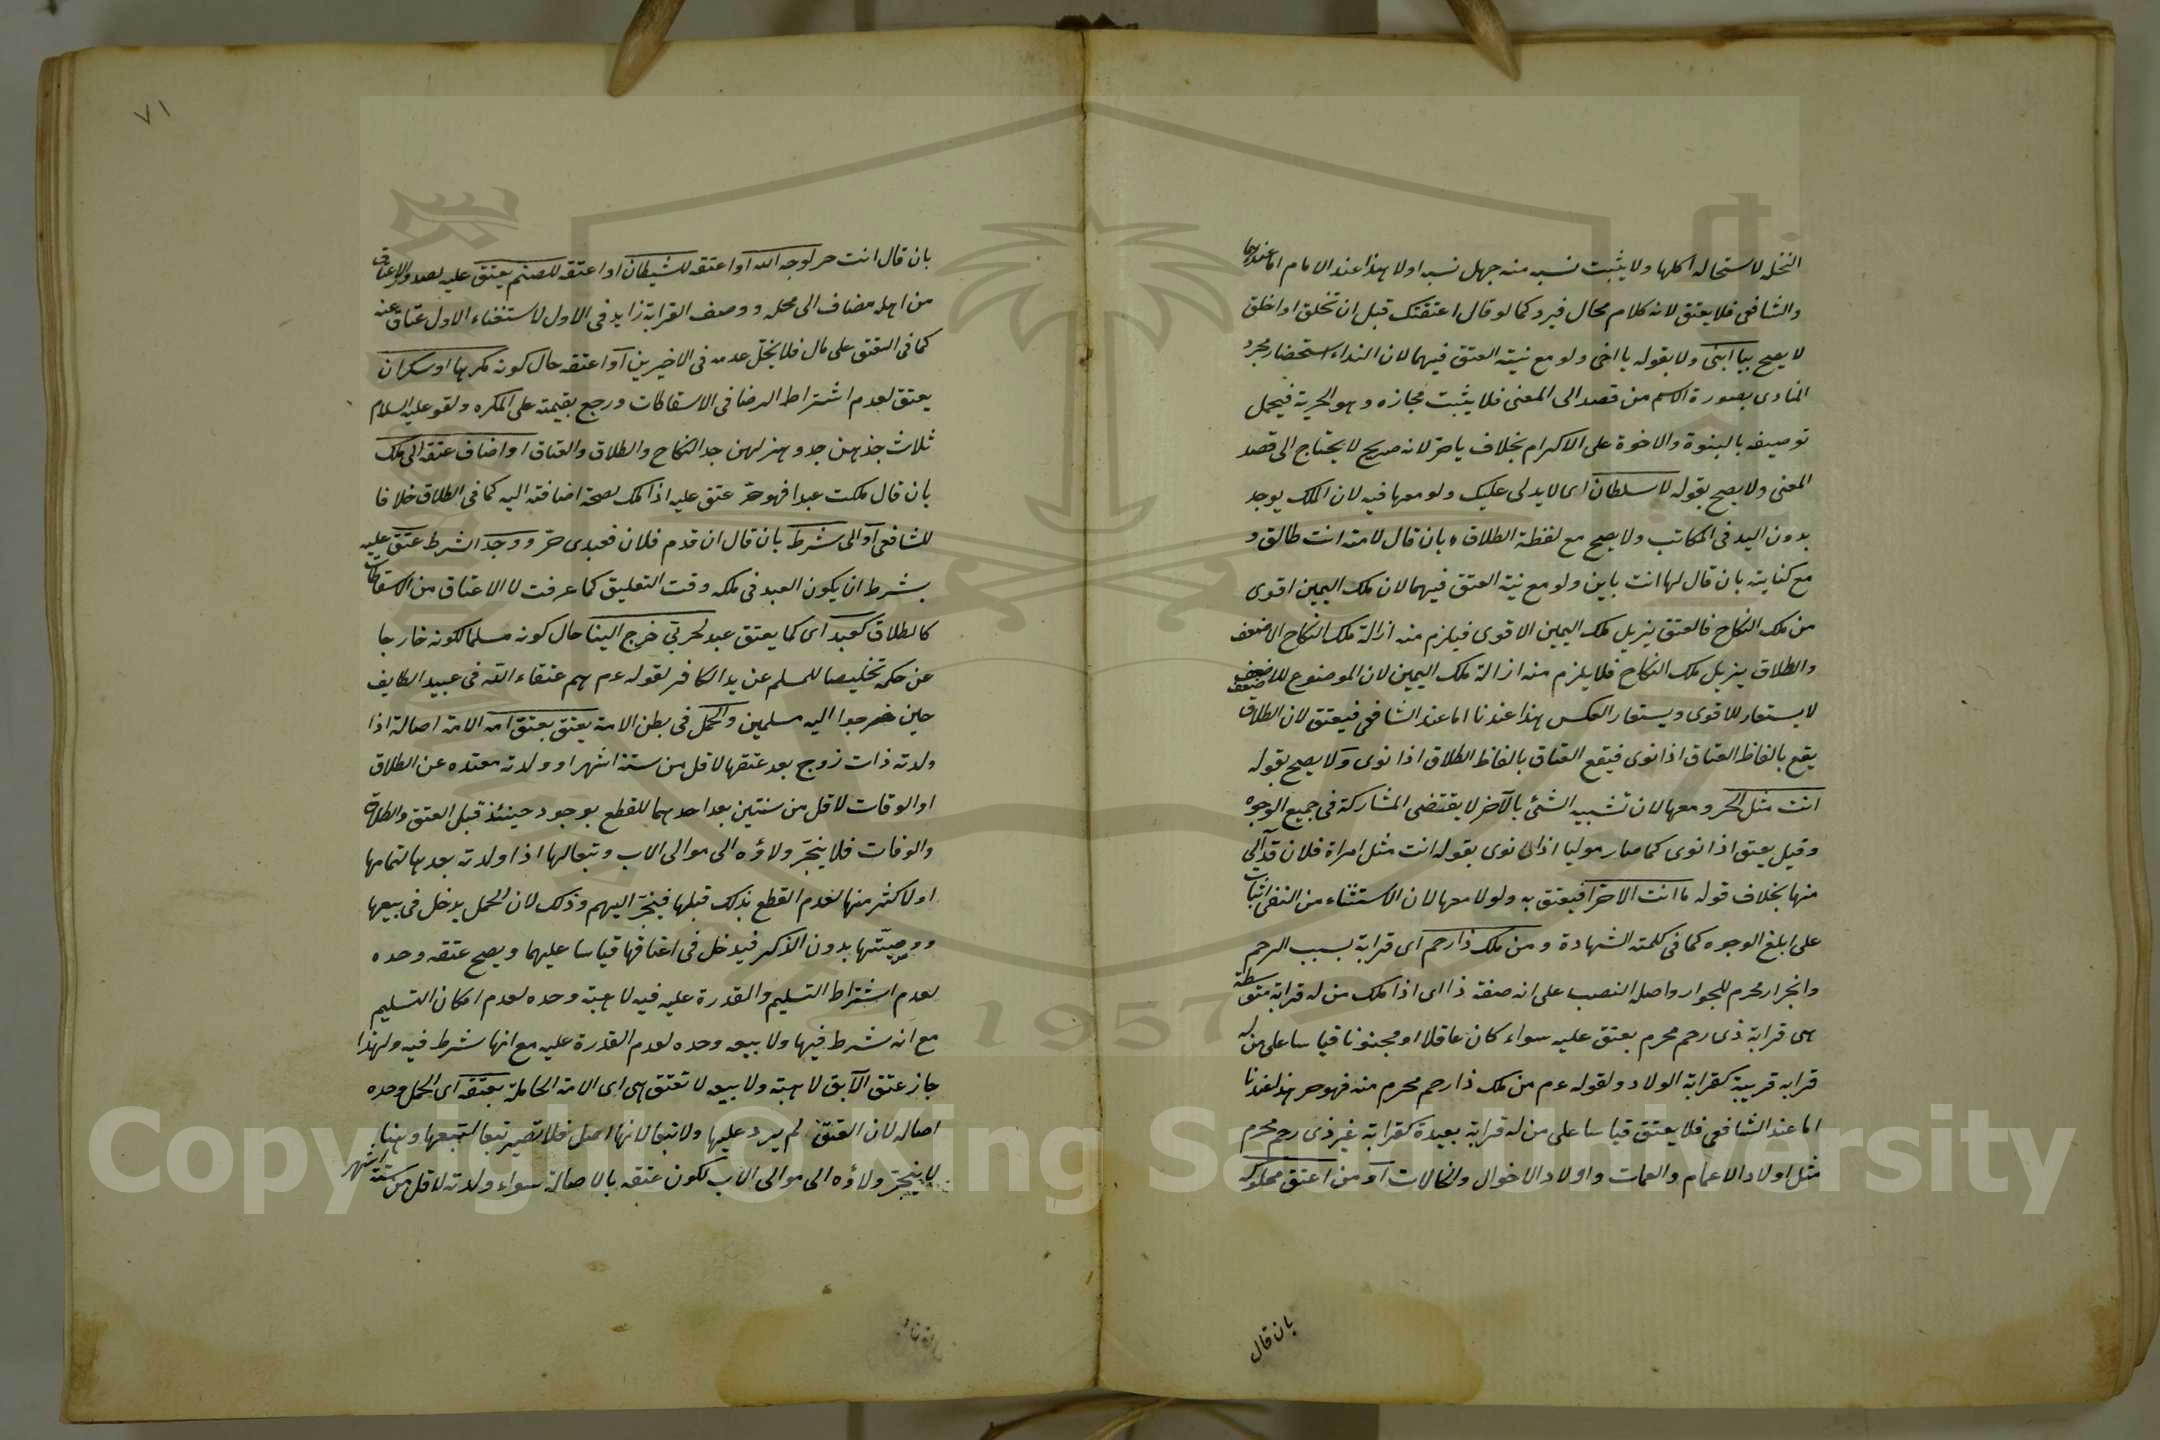 النخلة لاستحالة اكلها ولا يثبت نسبه منه جهل نسبه اولا هذا عند الامام اما عندهما
والشافعى فلا يعتق لانه كلام محال فيرد كما لو قال اعتقتك قبل ان تخلق او اخلق
لا يصح بيا ابنى ولا بقوله يا اخى ولو مع نية العتق فيهما لان النداء استحضار مجرد
المنادى بصورة الاسم من قصد الى المعنى فلا يثبت مجازه وهو الحرية فيحمل
توصيفه بالبنوة والاخوة على الاكرام بخلاف يا حر لانه صريح لا يحتاج الى قصد
المعنى ولا يصح بقوله لا سلطان اى لا يد لى عليك ولو معها فيه لان الملك يوجد
بدون اليد فى المكاتب ولا يصح مع لفظة الطلاق بان قال لامته انت طالق و
مع كنايته بان قال لها انت باين ولو مع نية العتق فيهما لان ملك اليمين اقوى
من ملك النكاح فالعتق يزيل ملك اليمين الاقوى فيلزم منه ازالة ملك النكاح الاضعف
والطلاق يزيل ملك النكاح فلا يلزم منه ازالة ملك اليمين لان الموضوع للاضعف
لا يستعار للاقوى ويستعار العكس هذا عندنا اما عند الشافعى فيعتق لان الطلاق
يقع بالفاظ العتاق اذا نوى فيقع العتاق بالفاظ الطلاق اذا نوى ولا يصح بقوله
انت مثل الحر ومعها لان تشبيه الشئ بالآخر لا يقتضى المشاركة فى جميع الوجوه
وقيل يعتق اذا نوى كما صار موليا اذا نوى بقوله انت مثل امراة فلان قد آلى
منها بخلاف قوله ما انت الا حر فيعتق به ولو لا معها لان الاستثناء من النفى اثبات
على ابلغ الوجوه كما فى كلمة الشهادة ومن ملك ذا رحم اى قرابة بسبب الرحم
وانجرار محرم للجوار واصله النصب على انه صفة ذا اى اذا ملك من له قرابة متوسطة
هى قرابة ذى رحم محرم يعتق عليه سواء كان عاقلا او مجنونا قياسا على من له
قرابة قريبة كقرابة الولاد ولقوله عم من ملك ذا رحم محرم منه فهو حر هذا عندنا
اما عند الشافعى فلا يعتق قياسا على من له قرابة بعيدة كقرابة غير ذى رحم محرم
مثل اولاد الاعمام والعمات واولاد الاخوال والخالات او من اعتق مملوكه
بان قال
٧١
بان قال انت حر لوجه الله او اعتقه للشيطان او اعتقه للصنم يعتق عليه لصدور الاعتاق
من اهله مضاف الى محله ووصف القرابة زايد فى الاول لاستغناء الاول عتاق عنه
كما فى العتق على مال فلا يختل عدمه فى الاخيرين او اعتقه حال كونه مكرها او سكران
يعتق لعدم اشتراط الرضا فى الاسقاطات ورجع بقيمته على المكره ولقوله عليه السلام
ثلاث جدهن جد وهزلهن جد النكاح والطلاق والعتاق او اضاف عتقه الى ملك
بان قال ملكت عبدا فهو حر عتق عليه اذا ملك لصحة اضافته اليه كما فى الطلاق خلافا
للشافعى او الى شرط بان قال ان قدم فلان فعبدى حر ووجد الشرط عتق عليه
بشرط ان يكون العبد فى ملكه وقت التعليق كما عرفت لان الاعتاق من الاسقاطات
كالطلاق كعبد اى كما يعتق عبد لحربى خرج الينا حال كونه مسلما لكونه خارجا
عن حكمه تخليصا للمسلم عن يد الكافر لقوله عم هم عتقاء الله فى عبيد الطايف
حين خرجوا اليه مسلمين والحمل فى بطن الامة يعتق بعتق امه الامة اصالة اذا
ولدته ذات زوج بعد عتقها لاقل من ستة اشهر او ولدته معتدة عن الطلاق
او الوفات لاقل من سنتين بعد احدهما للقطع بوجوده حينئذ قبل العتق والطلاق
والوفات فلا ينجر ولاؤه الى موالى الاب وتبعا لها اذا ولدته بعدها لتمامها
او لاكثر منها لعدم القطع بذلك قبلها فينجر اليهم وذلك لان الحمل يدخل فى بيعها
ووصيتها بدون الذكر فيدخل فى اعتاقها قياسا عليهما ويصح عتقه وحده
لعدم اشتراط التسليم والقدرة عليه فيه لا هبته وحده لعدم امكان التسليم
مع انه شرط فيها ولا بيعه وحده لعدم القدرة عليه مع انها شرط فيه ولهذا
جاز عتق الآبق لا هبته ولا بيعه لا تعتق هى اى الامة الحاملة بعتقه اى الحمل وحده
اصالة لان العتق لم يرد عليها ولا تبعا لانها اصل فلا تصير تبعا لتبعها وهنا
لا ينجر ولاؤه الى موالى الاب لكون عتقه بالاصالة سواء ولدته لاقل من ستة اشهر
Copyright © King Saud University
1957